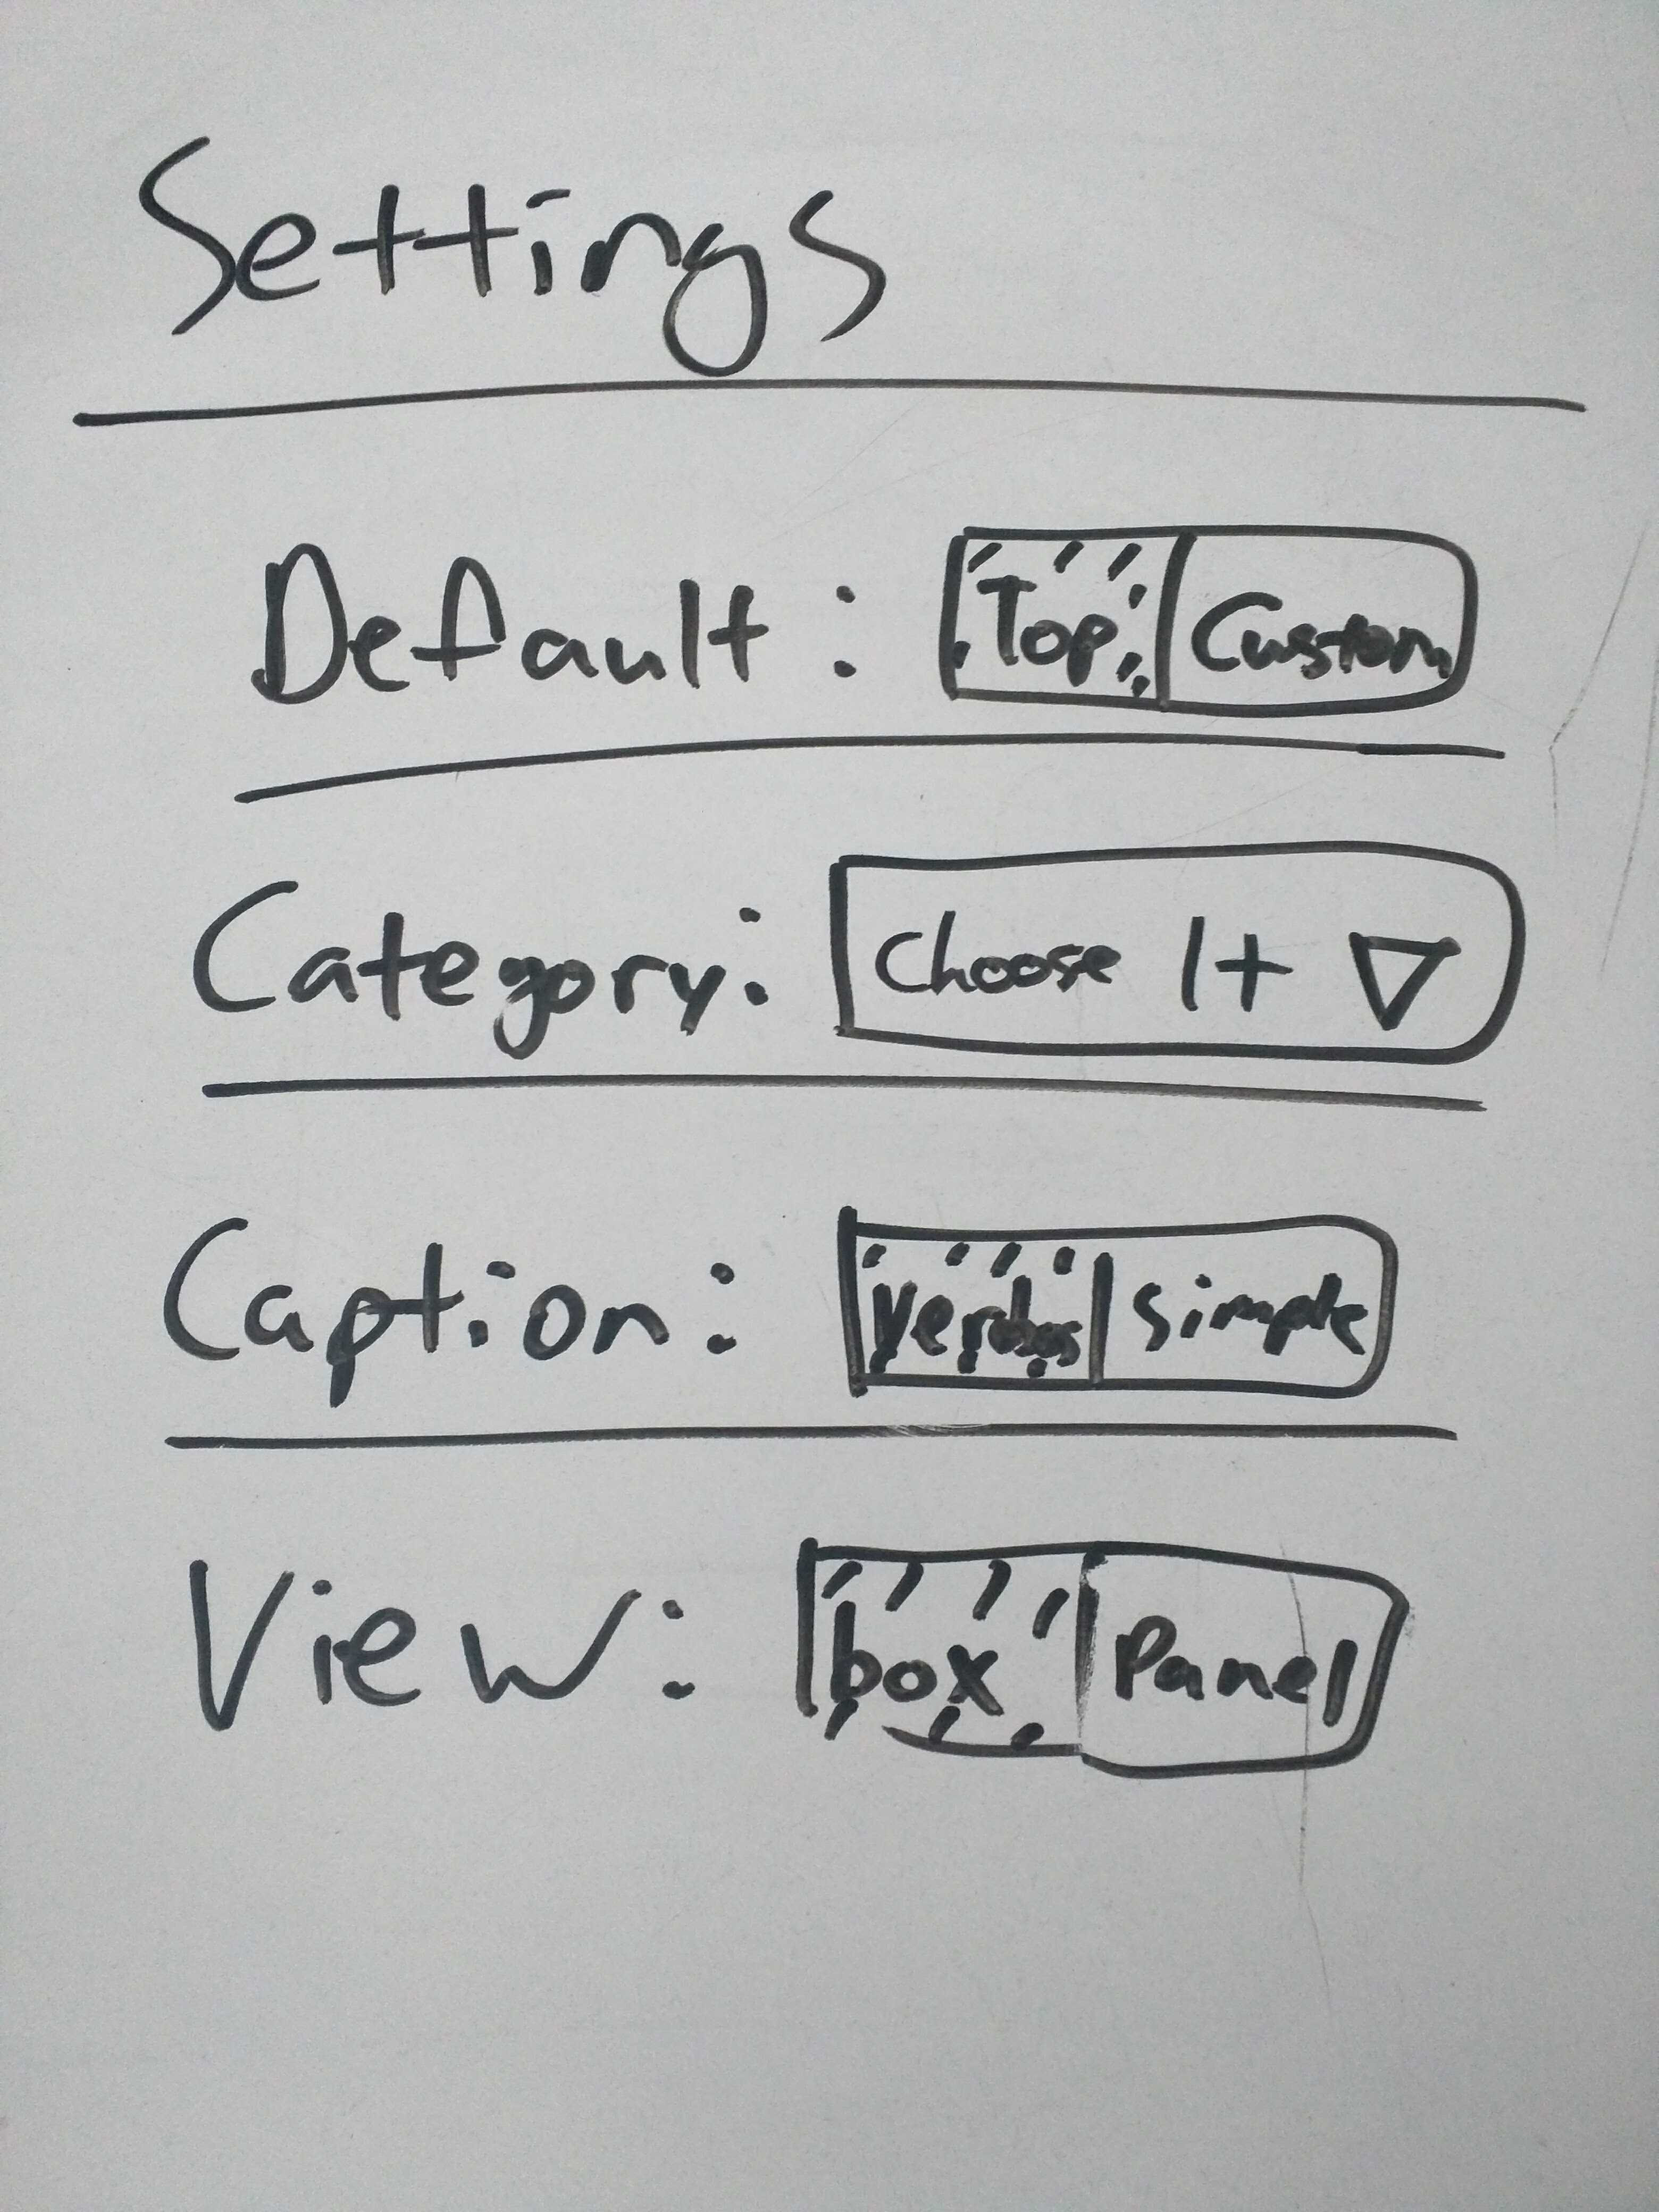 Settings
Default: Top Custom
Category: Choose 1+
Caption: Verbos Simple
View: box Panel